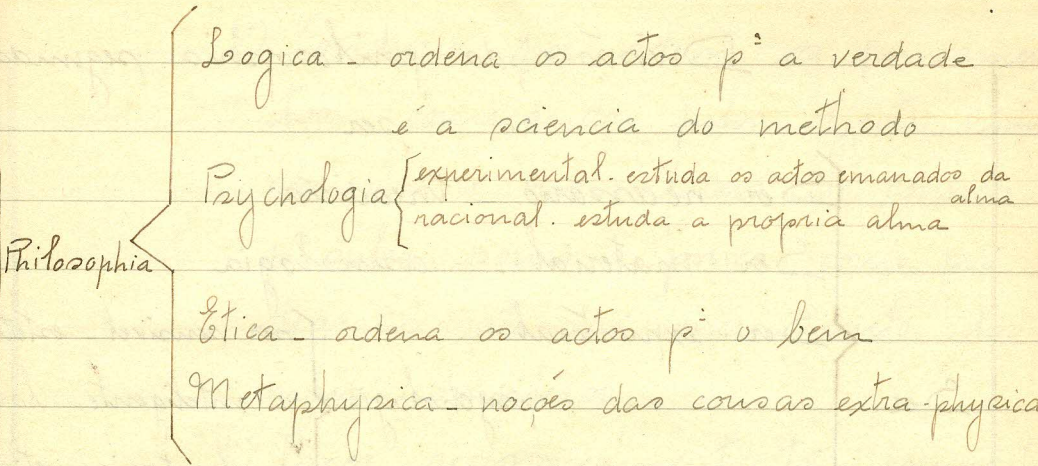 Logica - ordena os actos pª a verdade
é a sciencia do methodo
Psychologia
experimental. estuda os actos emanados da alma
racional. estuda a propria alma
Philosophia
Etica - ordena os actos pª o bem
Metaphysica - noções das cousas extra-physica